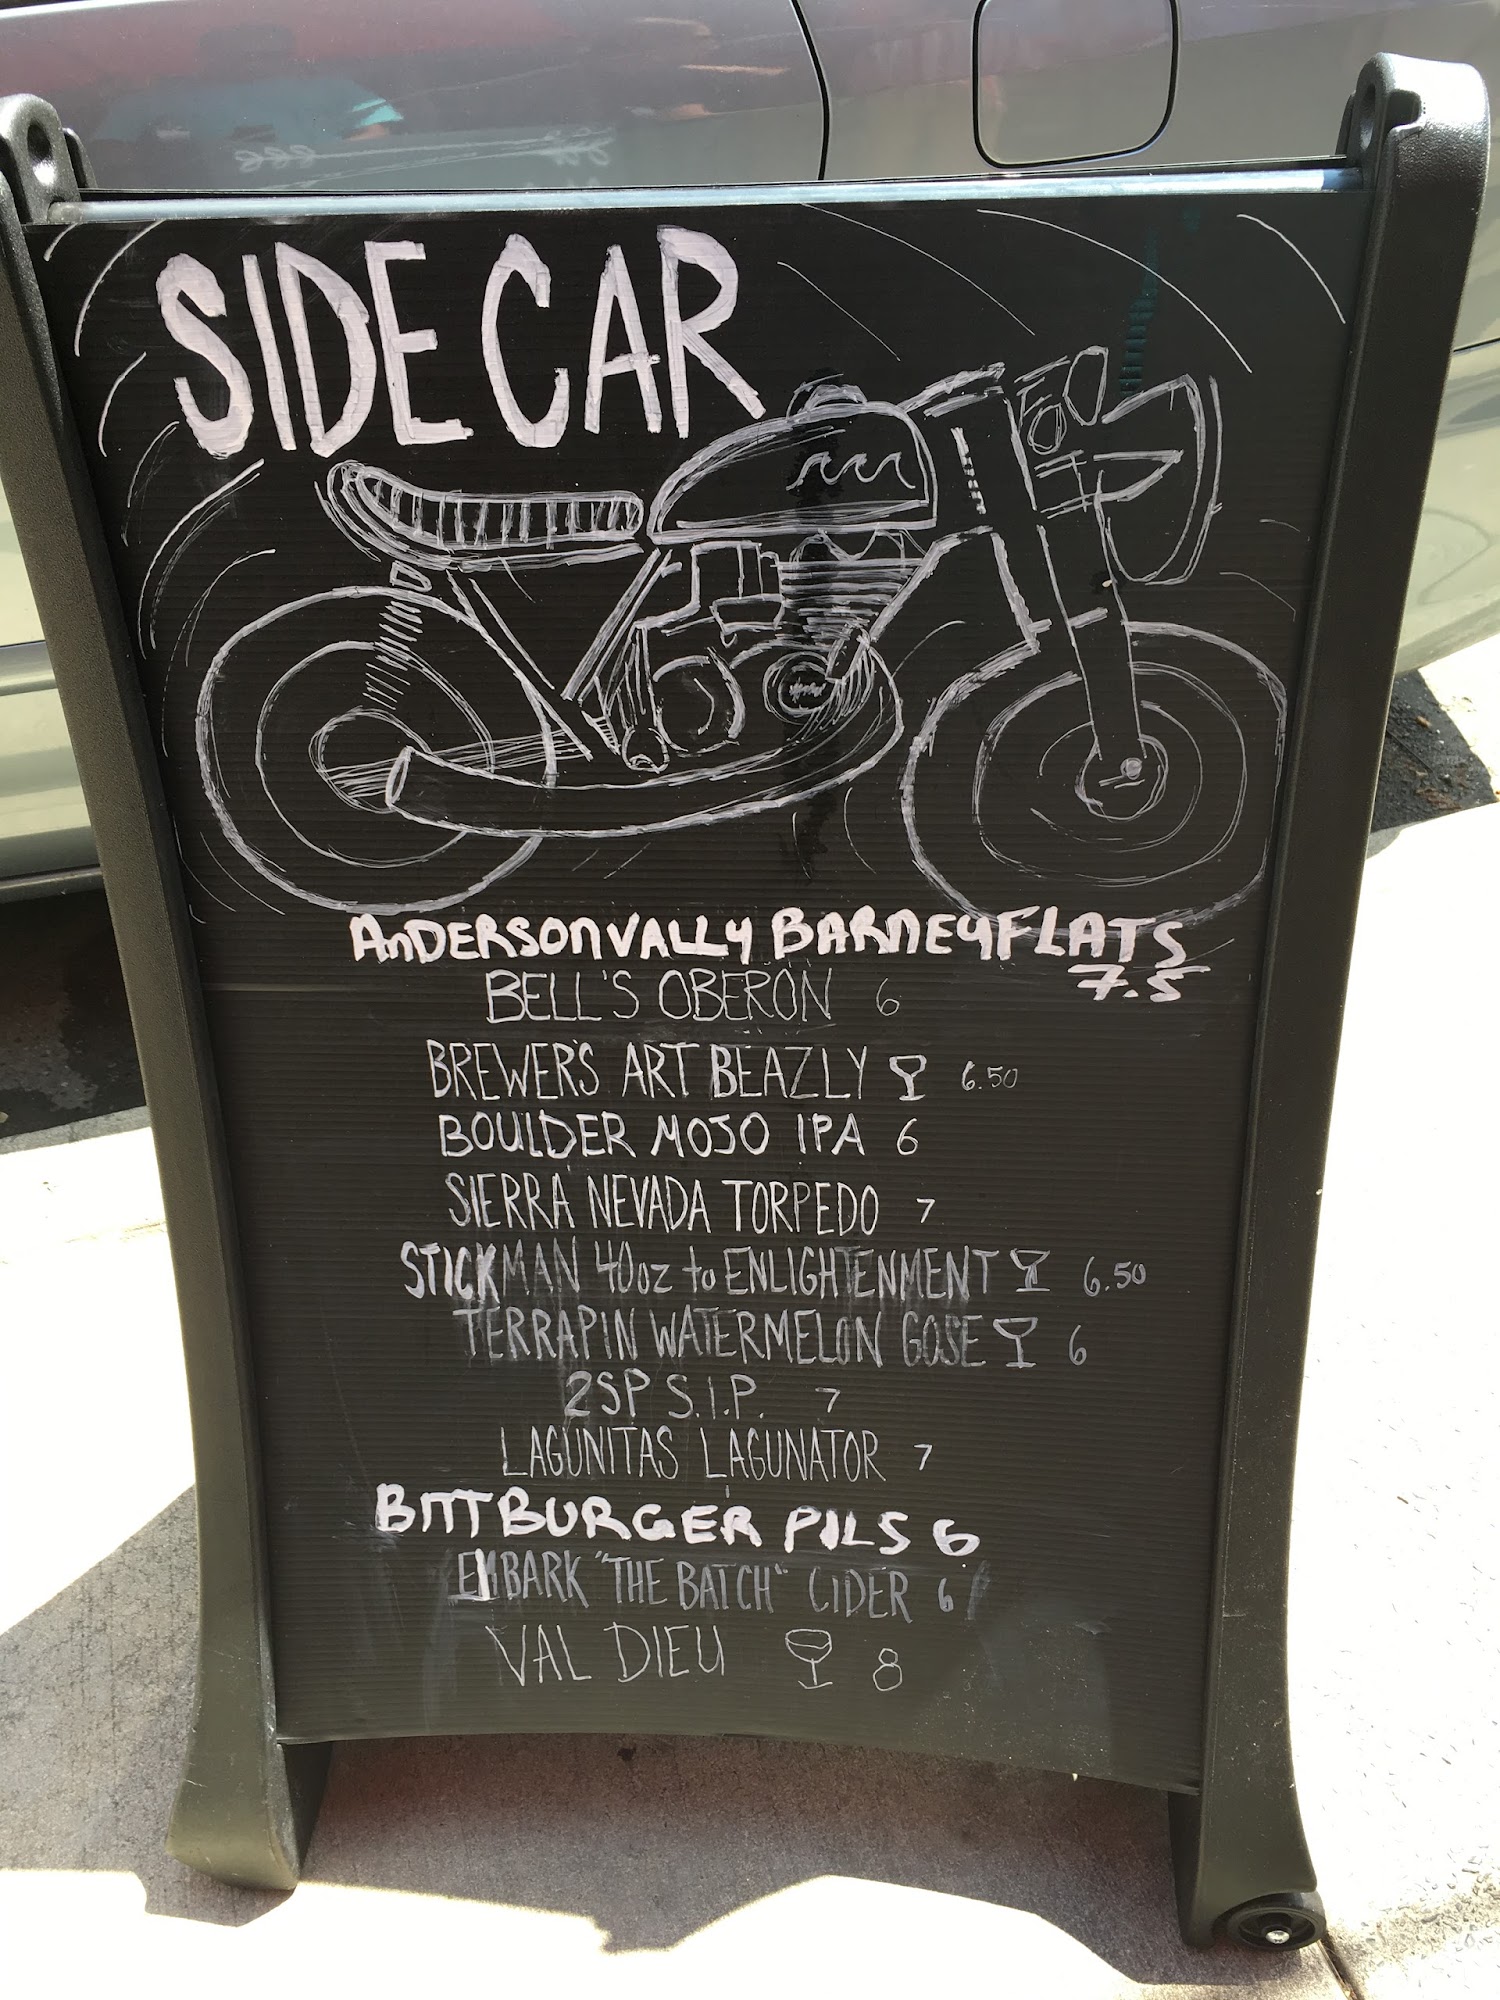 SIDE CAR
ANDERSONVALLY BARNEYFLATS
7.5
BELL'S OBERON 6
BREWER'S ART BEAZLY 6.50
BOULDER MOJO IPA 6
SIERRA NEVADA TORPEDO 7
STICKMAN 40oz to ENLIGHTENMENT 6.50
TERRAPIN WATERMELON GOSE 6
2SP S.I.P. 7
LAGUNITAS LAGUNATOR 7
BITTBURGER PILS 6
EMBARK "THE BATCH" CIDER 6
VAL DIEU 8